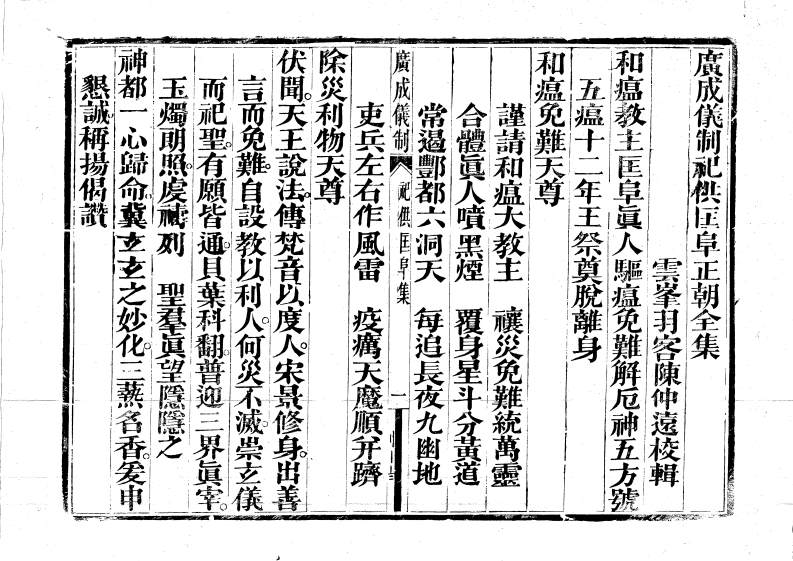 廣成儀制祀供匡阜正朝全集
雲峯羽客陳仲遠校輯
和瘟教主匡阜眞人驅瘟免難解厄神五方號
五瘟十二年王祭奠脫離身
和瘟免難天尊
謹請和瘟大教主　禳災免難統萬靈
合體眞人噴黑煙　覆身星斗分黃道
常遏酆都六洞天　每追長夜九幽地
吏兵左右作風雷　疫癘天魔順幷躋
廣成儀制　祀供匡阜集　一
除災利物天尊
伏聞。天王說法。傳梵音以度人。宋景修身。出善
言而免難。自設敎以利人。何災不滅。崇立儀
而祀聖。有願皆通。貝葉科翻。普迎三界眞宰。
玉燭朗照。虔禱列　聖羣眞望隱隱之
神都一心歸命。冀玄玄之妙化。三爇名香。爰申
懇誠。稱揚偈讚